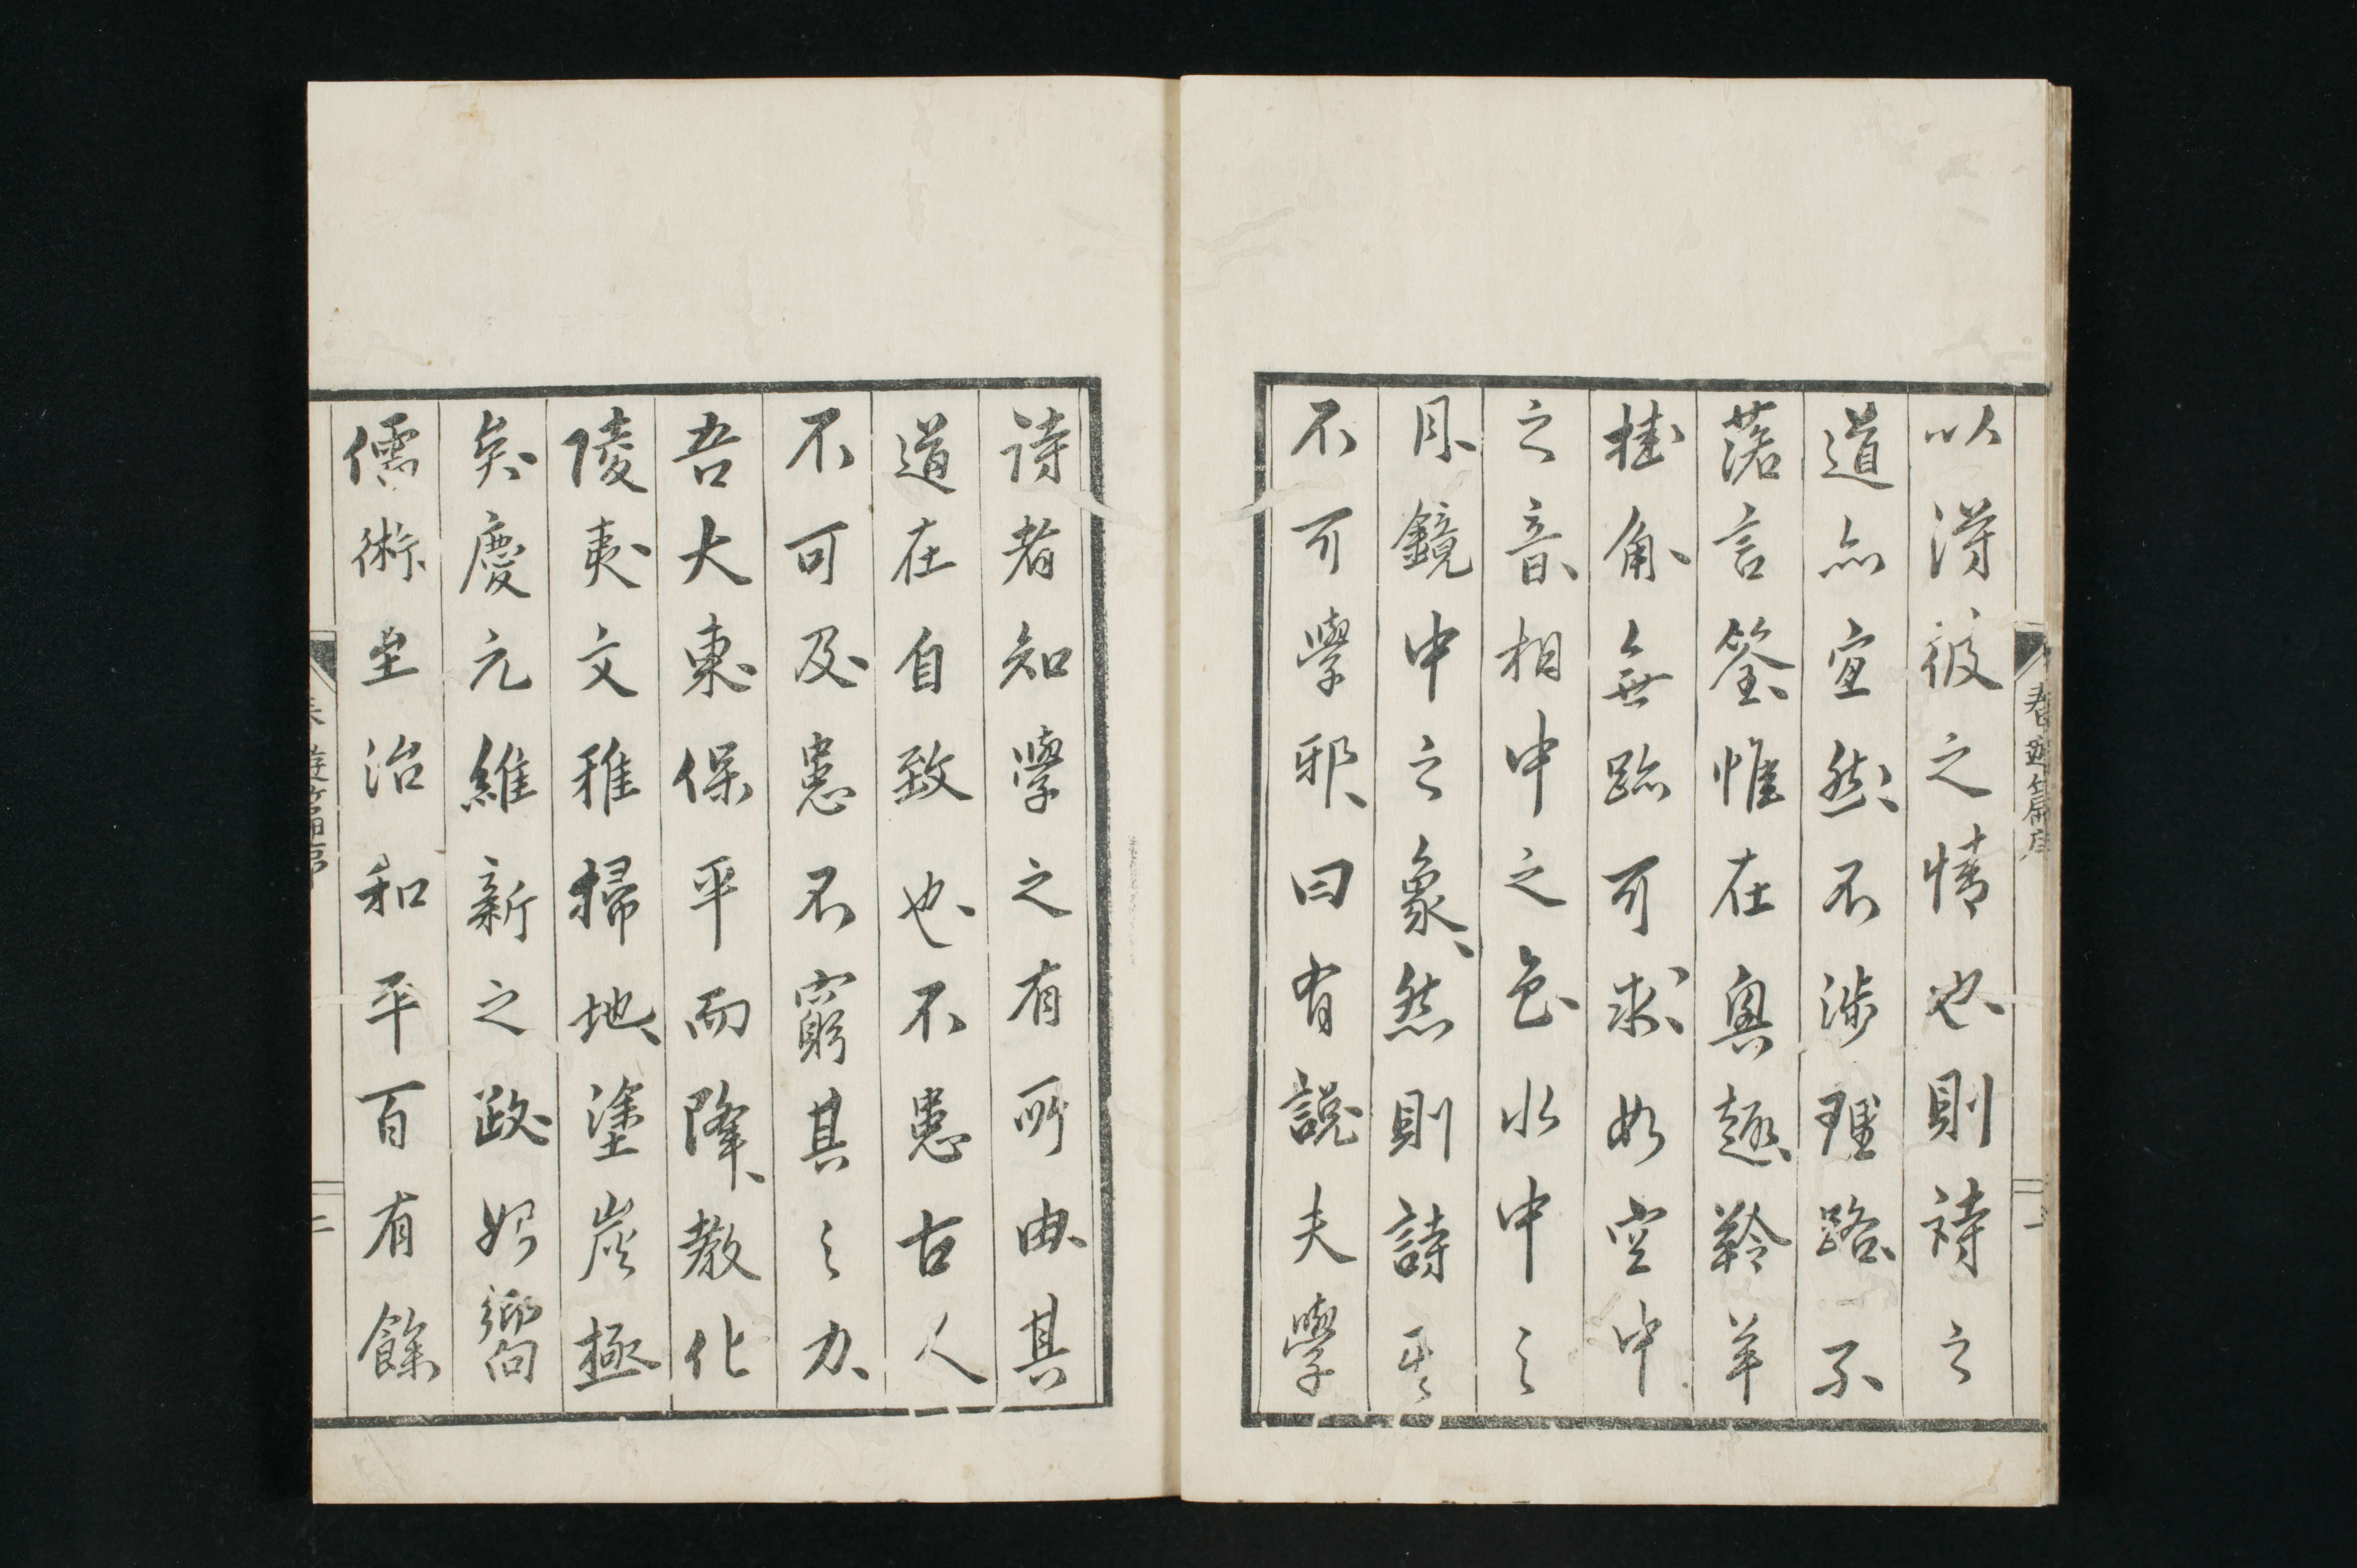 春遊篇序
一
以得彼之情也則詩之
道亦宜然不渉理路不
落言筌惟在興趣羚羊
挂角無跡可求如空中
之音相中之色水中之
月鏡中之象然則詩其
不可學邪曰有説夫學
詩者知學之有所由其
道在自致也不患古人
不可及患不窮其之力
吾大東保平而降教化
陵夷文雅掃地塗炭極
矣慶元維新之政始嚮
儒術至治和平百有餘
春遊篇序
二